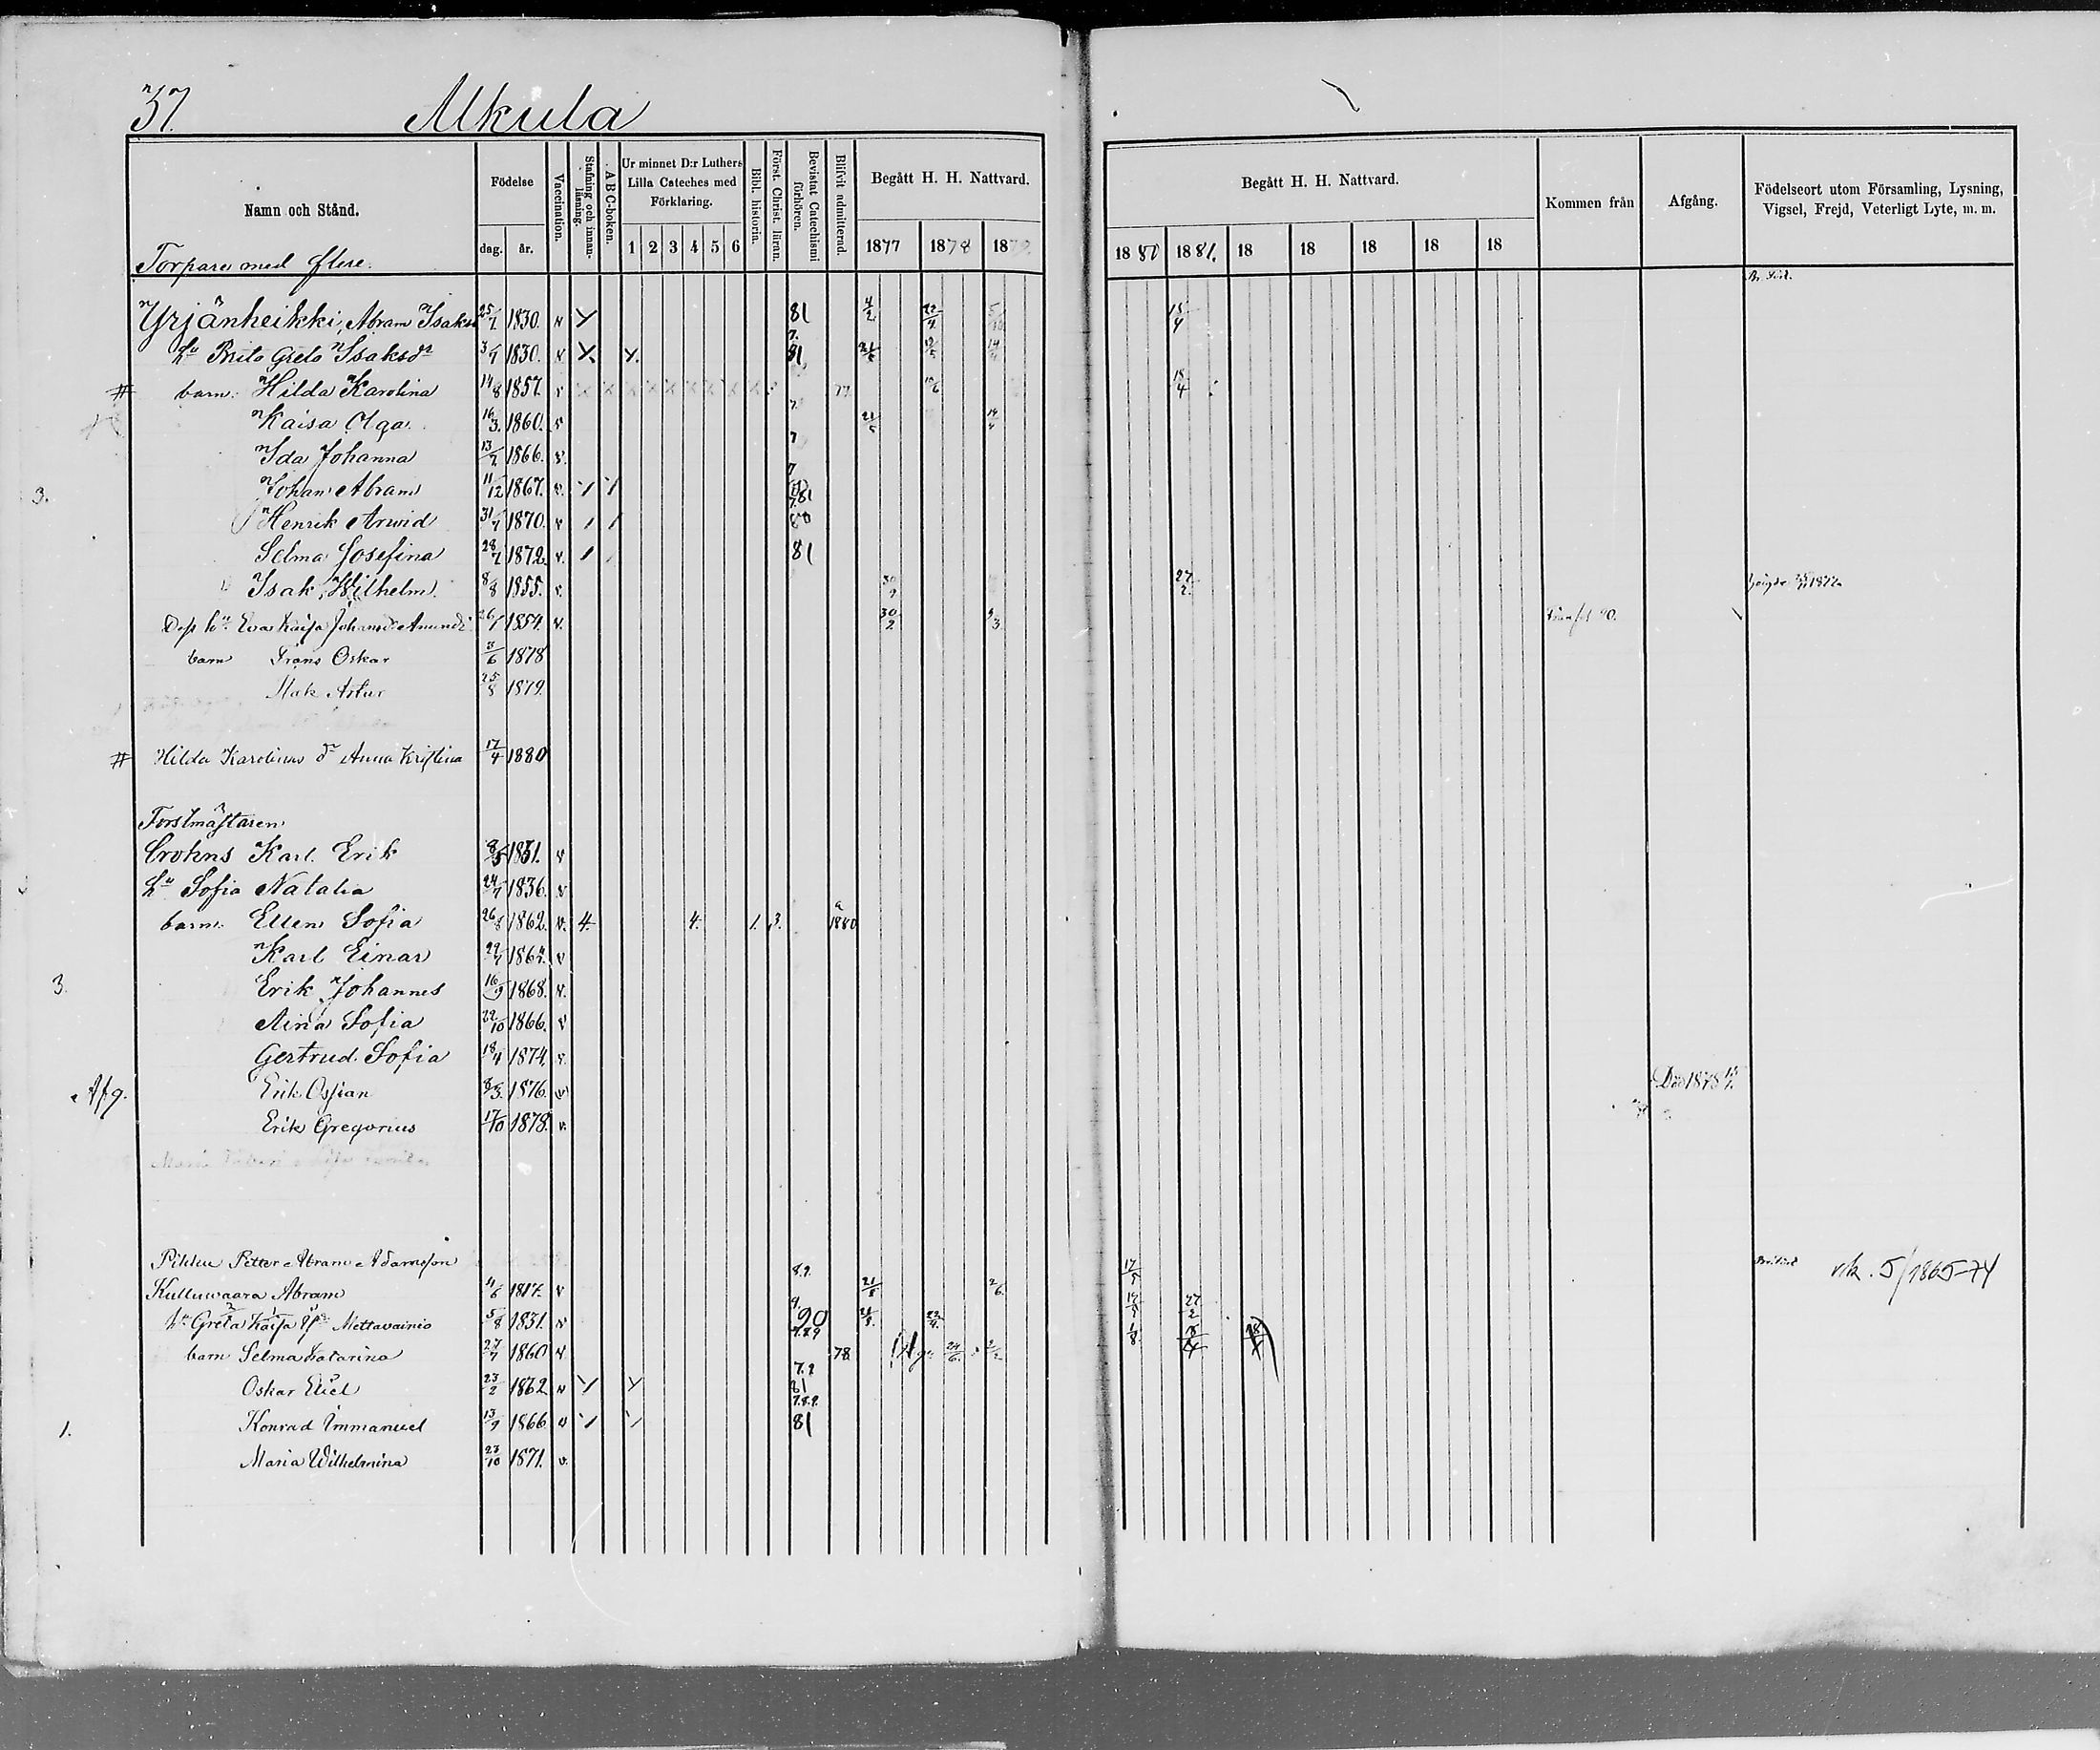 37. Alkula
Namn och Stånd. Födelse dag. år. Vaccination. Stafning och innanläsning. A B C-boken. Ur minnet D:r Luthers Lilla Cateches med Förklaring. 1 2 3 4 5 6 Bibl. historia. Först. Christ. läran. Bevistat Catechismi förhören. Blifvit admitterad. Begått H. H. Nattvard. 1877 1878 1879.
Begått H. H. Nattvard. 1880 1881. 18 18 18 18 18 Kommen från Afgång. Födelseort utom Församling, Lysning, Vigsel, Frejd, Veterligt Lyte, m. m.
Torpare med flere.
Yrjänheikki, Abram Isaks 25/7 1830. v 81 4/2 22/4 18/4
hu Brita Greta Isaksdr 3/7 1830. v 7. 81 21/5 12/5 14/4
# barn: Hilda Karolina 14/8 1857. v 77 18/4
Kaisa Olga 16/3 1860. v 7. 21/5 14/4
Ida Johanna 13/2 1866. v. 7
3. Johan Abram 11/12 1867. v. 7 81
Henrik Arwid 31/7 1870. v 80
Selma Josefina 28/2 1872. v. 81
Isak Wilhelm 8/8 1855. v. 30/9 27/2.
Dess hu Eva Kaisa Johansdr Anundi 26/1 1854. v. 30/2 9/3
barn Frans Oskar 3/6 1878
Isak Artur 25/8 1879.
# Hilda Karolinas dr Anna Kristina 17/4 1880
Forstmästaren
Crohns Karl Erik 8/5 1831. v
hu Sofia Natalia 24/7 1836. v
barn. Ellen Sofia 26/8 1862. v. 4. 4. 1. 3. 1880
Karl Einar 22/7 1864. v
3. Erik Johannes 16/9 1868. v.
Aina Sofia 22/10 1866. v
Gertrud Sofia 18/4 1874. v.
Afg. Erik Ossian 8/3. 1876. v Död 1878
Erik Gregorius 17/10 1878. v.
Pikku Petter Abram Adamsson
Kulluwaara Abram 4/6 1817. v 8.9. 21/5 2/6 17/5 vrk. 5/1865-74
hu Greta Kajsa Mettavainio 5/8 1831. v 90 21/5. 22/4. 17/5 27/2
barn Selma Katarina 27/7 1860 v 7.8.9 78 24/6. 1/8
Oskar Eliel 23/2 1862 v 7.9 81
1. Konrad Immanuel 13/9 1866 v 7.8.9. 81
Maria Wilhelmina 23/10 1871. v.